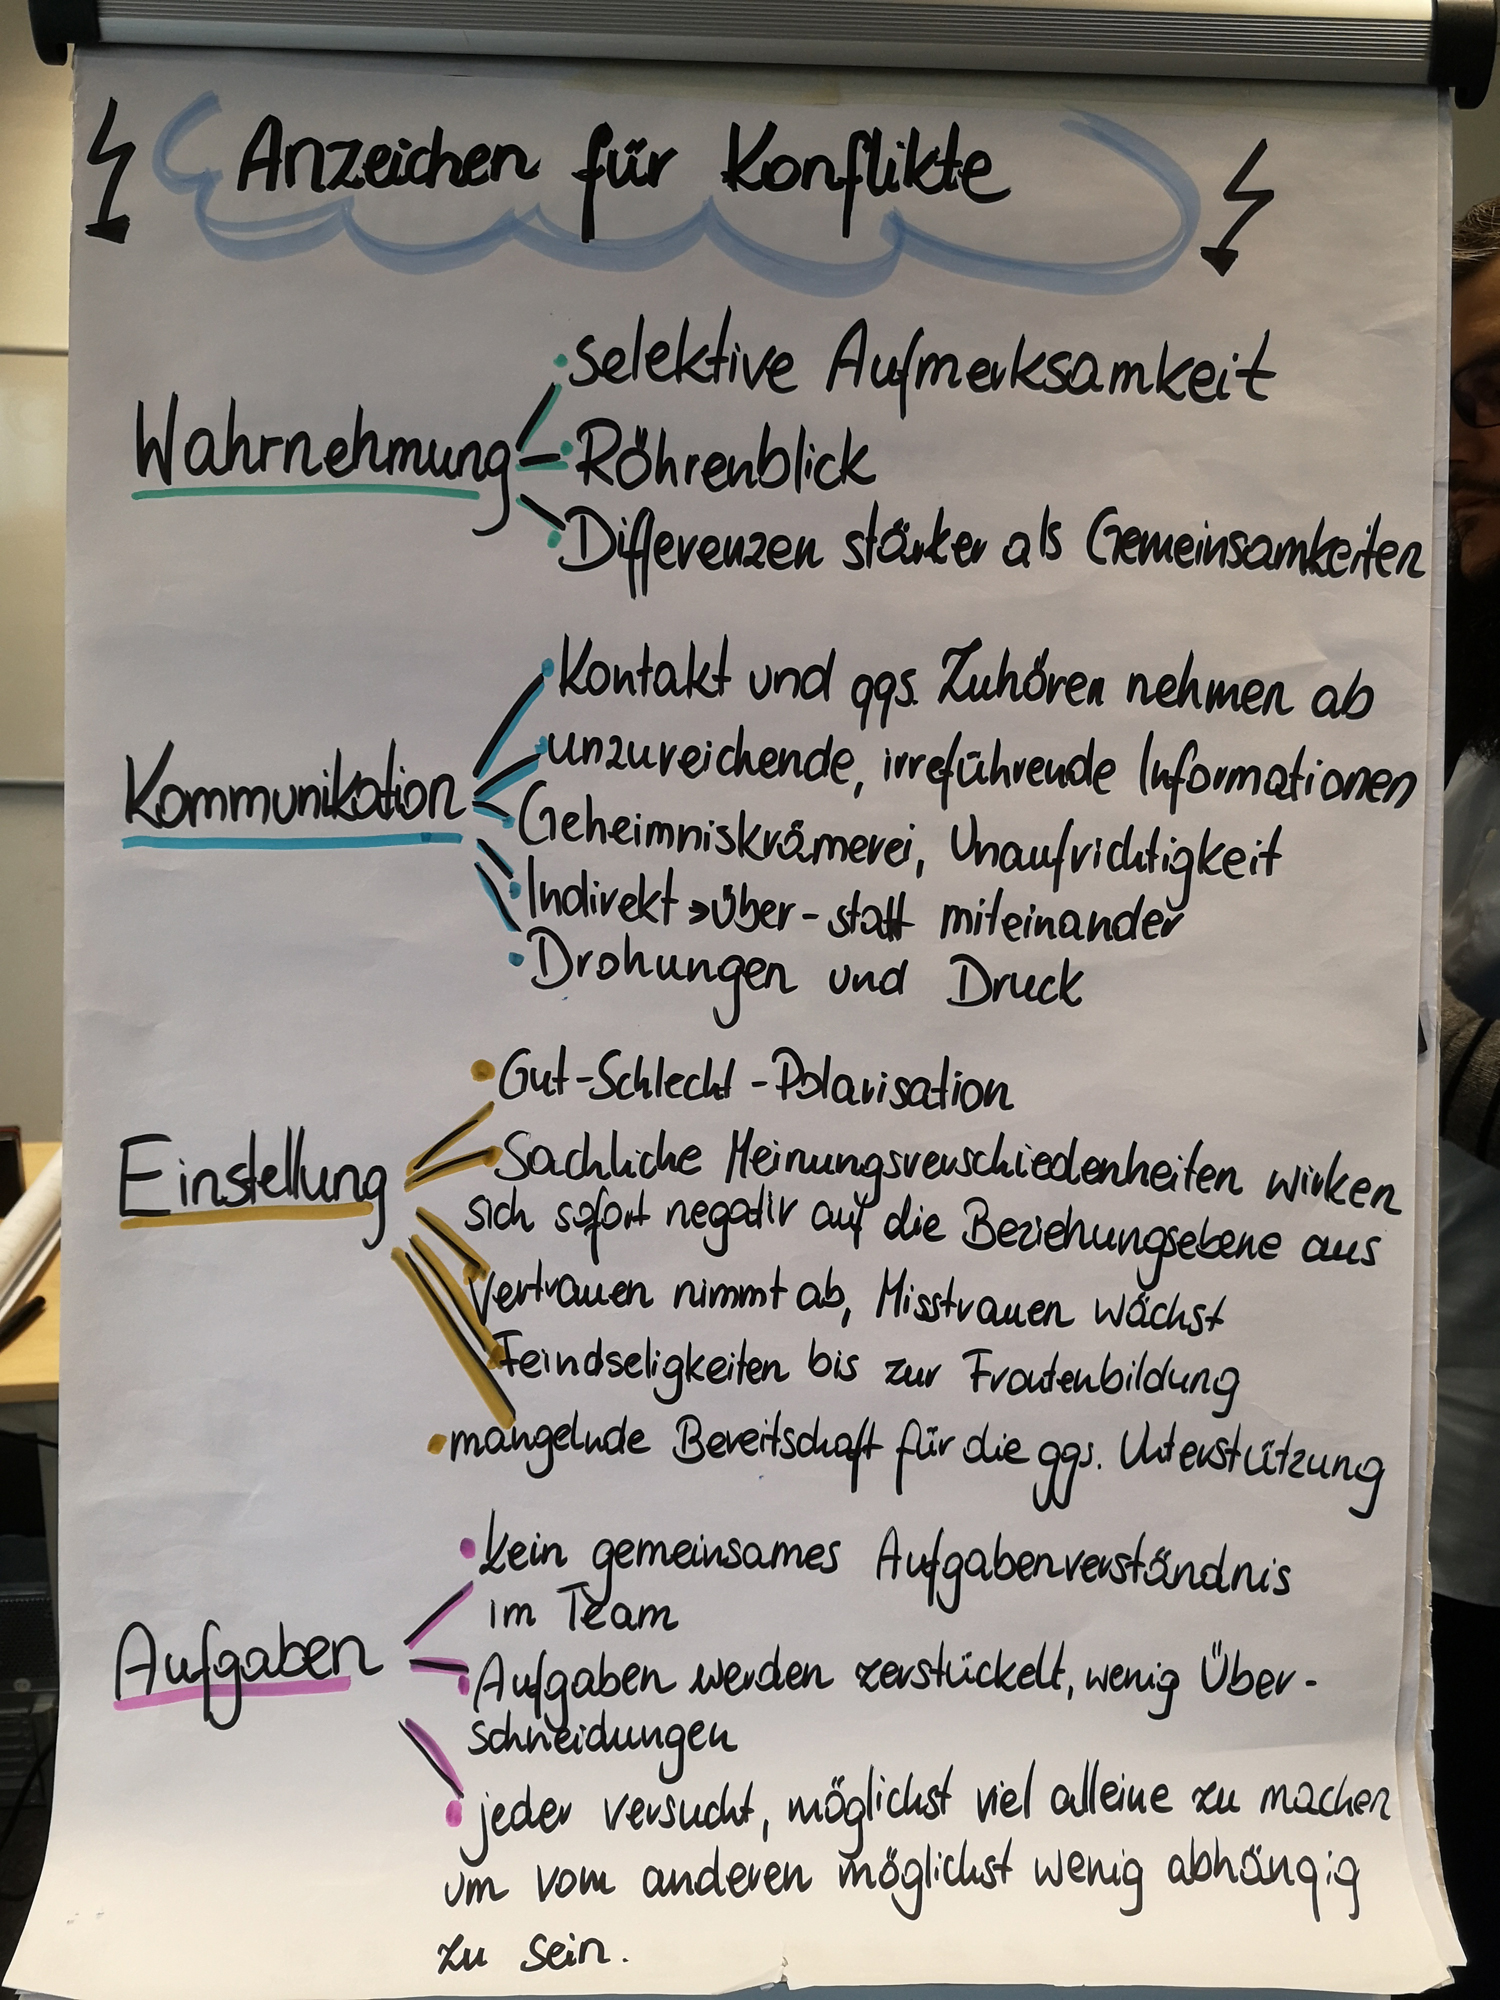 Anzeichen für Konflikte
Wahrnehmung
• selektive Aufmerksamkeit
• Röhrenblick
• Differenzen stärker als Gemeinsamkeiten
Kommunikation
• Kontakt und ggs. Zuhören nehmen ab
• unzureichende, irreführende Informationen
• Geheimniskrämerei, Unaufrichtigkeit
• Indirekt → über- statt miteinander
• Drohungen und Druck
Einstellung
• Gut-Schlecht-Polarisation
• Sachliche Meinungsverschiedenheiten wirken
sich sofort negativ auf die Beziehungsebene aus
• Vertrauen nimmt ab, Misstrauen wächst
• Feindseligkeiten bis zur Frontenbildung
• mangelnde Bereitschaft für die ggs. Unterstützung
Aufgaben
• kein gemeinsames Aufgabenverständnis
im Team
• Aufgaben werden zerstückelt, wenig Über-
schneidungen
• jeder versucht, möglichst viel alleine zu machen
um vom anderen möglichst wenig abhängig
zu sein.